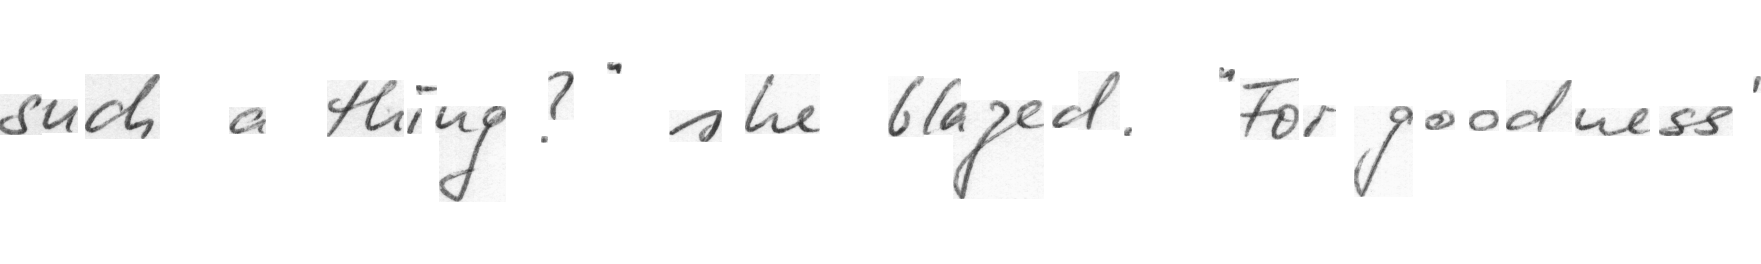 such a thing?" she blazed. "For goodness'